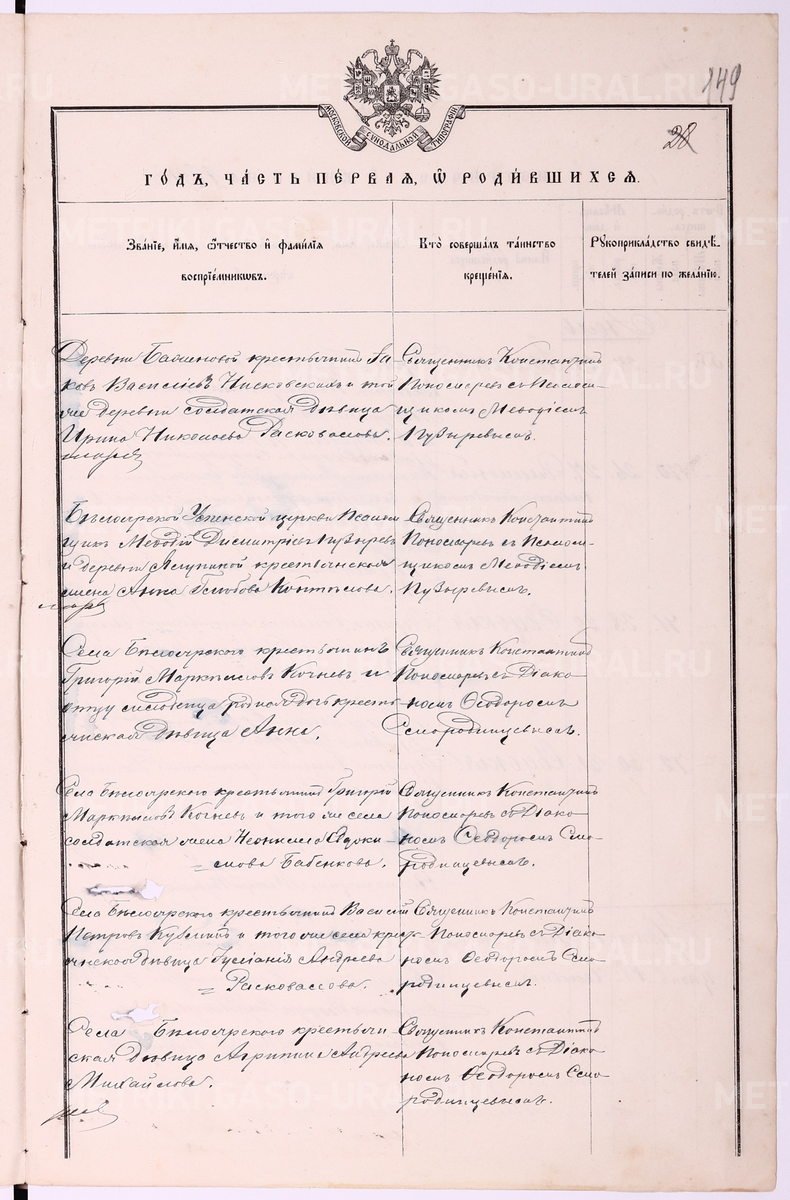 149
28
МОСКОВСКОЙ СѴНОДАЛЬНОЙ ТИПОГРАФІИ
ГОДЪ, ЧАСТЬ ПЕРВАЯ, Ѡ РОДИВШИХСЯ.
Званіе, имя, отчество и фамилія
воспріемниковъ.
Кто совершалъ таинство
крещенія.
Рукоприкладство свидѣ-
телей записи по желанію.
Деревни крестьянинъ Я-
ковъ Васильевъ и той
же деревни солдатская дѣвица
Ирина Николаева Расковалова.
Священникъ Константинъ
Пономаревъ съ Псалом-
щикомъ Меѳодіемъ
Пузыревымъ.
Бѣлоярской Успенской церкви Псалом-
щикъ Меѳодій Димитріевъ Пузыревъ
и деревни крестьянская
жена Анна Глѣбова
Священникъ Константинъ
Пономаревъ съ Псалом-
щикомъ Меѳодіемъ
Пузыревымъ.
Села Бѣлоярскаго крестьянинъ
Григорій Маркіановъ Кочневъ и
отцу младенца родная дочь кресть-
янская дѣвица Анна.
Священникъ Константинъ
Пономаревъ съ Діако-
номъ Ѳеодоромъ
Смородинцевымъ.
Села Бѣлоярскаго крестьянинъ Григорій
Маркіановъ Кочневъ и того же села
солдатская жена Неонилла Евдоки-
мова Бабенкова.
Священникъ Константинъ
Пономаревъ съ Діако-
номъ Ѳеодоромъ Смо-
родинцевымъ.
Села Бѣлоярскаго крестьянинъ Василій
Петровъ и того же села кресть-
янская дѣвица Іуліанія Андреева
Расковалова.
Священникъ Константинъ
Пономаревъ съ Діако-
номъ Ѳеодоромъ Смо-
родинцевымъ.
Села Бѣлоярскаго крестьян-
ская дѣвица Андреева
Михайлова.
Священникъ Константинъ
Пономаревъ съ Діако-
номъ Ѳеодоромъ Смо-
родинцевымъ.